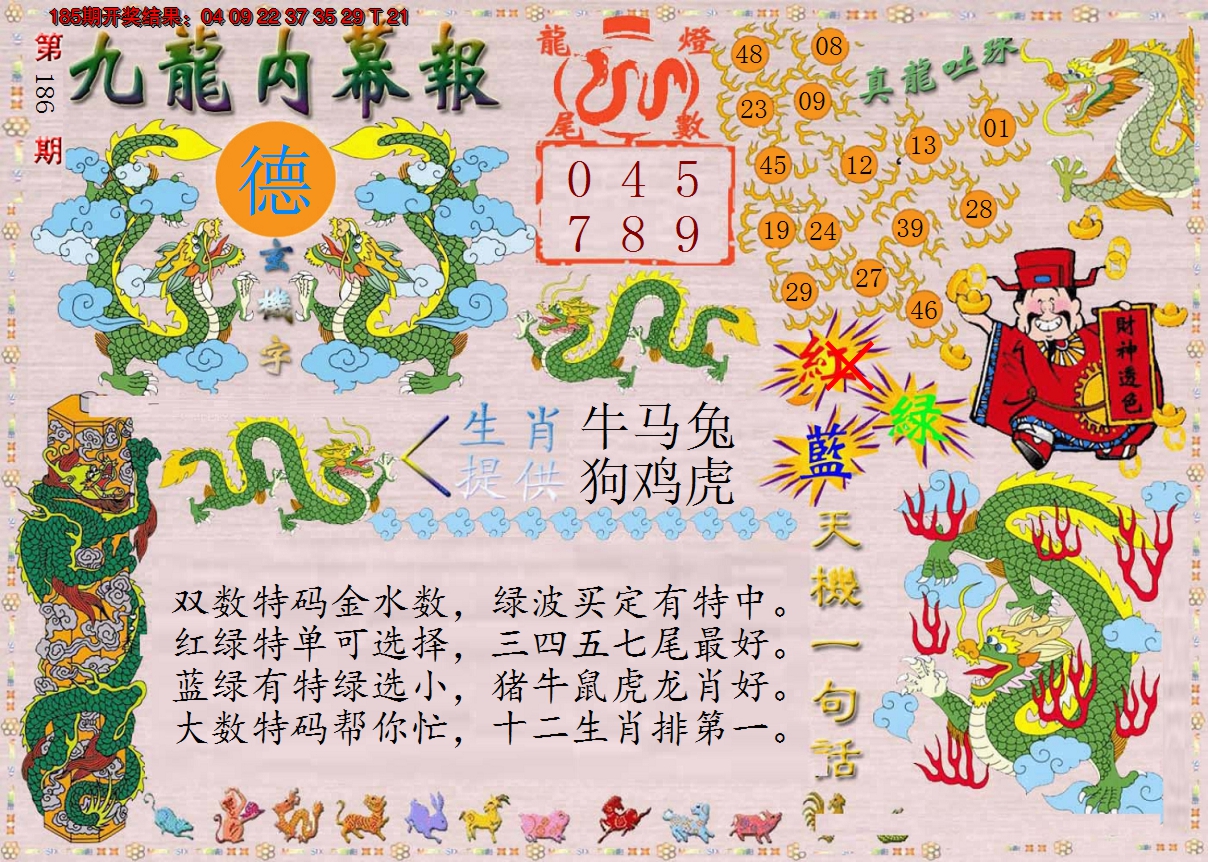 185期开奖结果：04 09 22 37 35 29 T 21
第186期
九龍内幕報
德
玄機字
龍燈
尾數
0 4 5
7 8 9
真龍吐珠
48 08
23 09
13 01
45 12
19 24 39 28
29 27 46
財神透色
紅
绿
藍
生肖 牛马兔
提供 狗鸡虎
天機一句话
双数特码金水数，绿波买定有特中。
红绿特单可选择，三四五七尾最好。
蓝绿有特绿选小，猪牛鼠虎龙肖好。
大数特码帮你忙，十二生肖排第一。